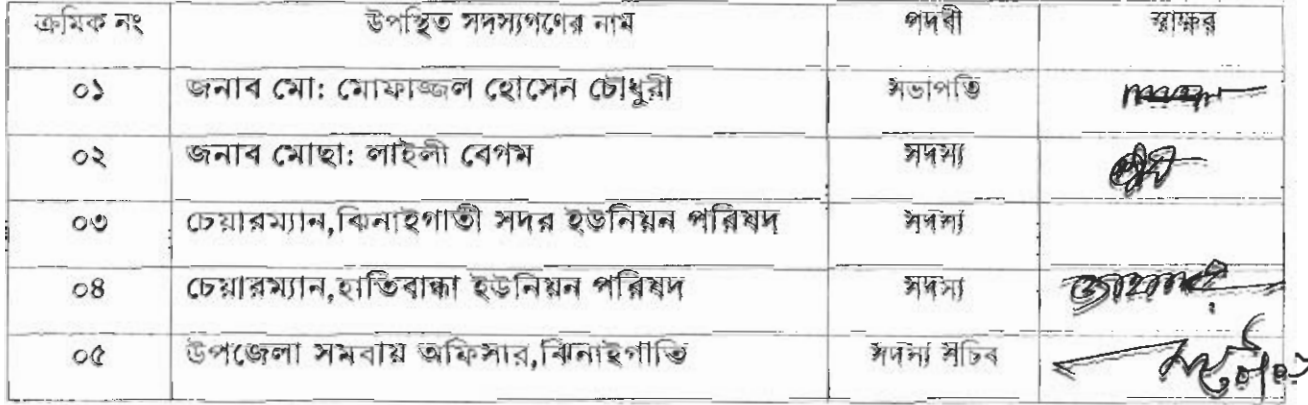 ক্রমিক নং উপস্থিত সদস্যগণের নাম পদবী স্বাক্ষর
০১ জনাব মো: মোফাজ্জল হোসেন চৌধুরী সভাপতি
০২ জনাব মোছা: লাইলী বেগম সদস্য
০৩ চেয়ারম্যান,ঝিনাইগাতী সদর ইউনিয়ন পরিষদ সদস্য
০৪ চেয়ারম্যান,হাতিবান্ধা ইউনিয়ন পরিষদ সদস্য
০৫ উপজেলা সমবায় অফিসার,ঝিনাইগাতি সদস্য সচিব